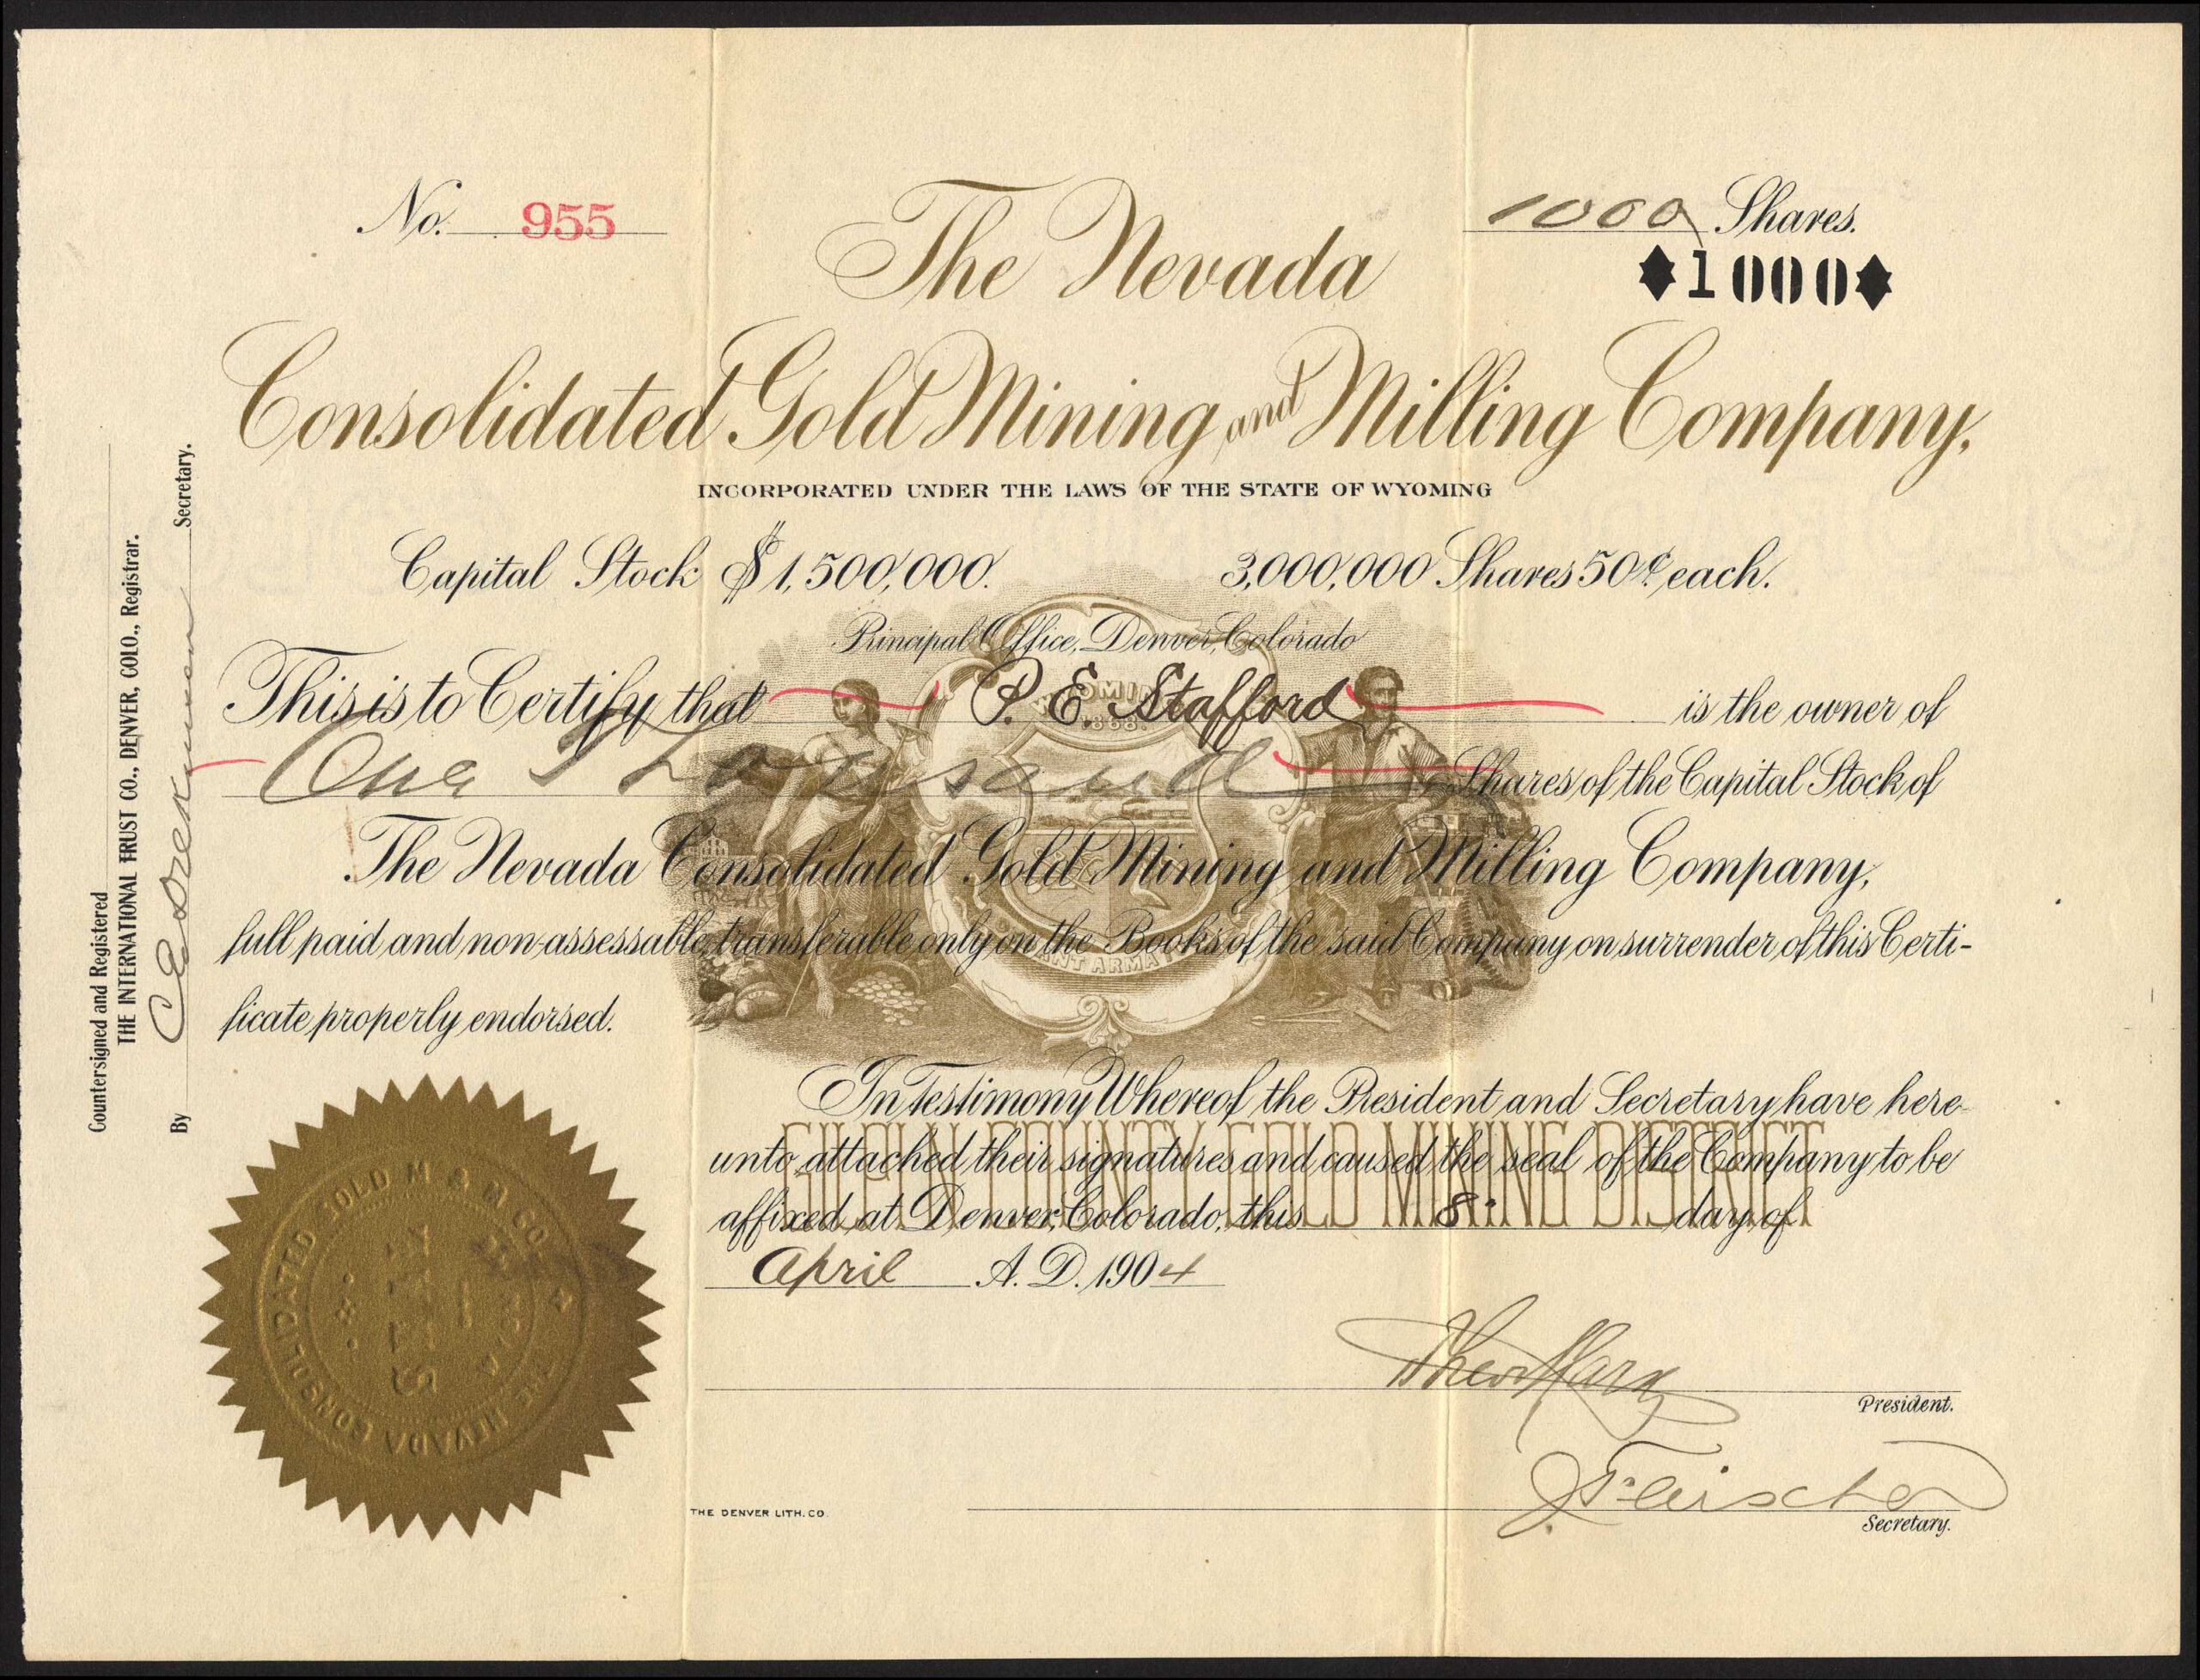 No. 955
1000 Shares.
♦1000♦
The Nevada
Consolidated Gold Mining and Milling Company,
INCORPORATED UNDER THE LAWS OF THE STATE OF WYOMING
Capital Stock $1,500,000. 3,000,000 Shares 50¢ each.
Principal Office, Denver, Colorado
This is to Certify that P. E. Stafford is the owner of
One Thousand Shares of the Capital Stock of
The Nevada Consolidated Gold Mining and Milling Company,
full paid and non-assessable, transferable only on the Books of the said Company on surrender of this Certi-
ficate properly endorsed.
In Testimony Whereof the President and Secretary have here-
unto attached their signatures and caused the seal of the Company to be
affixed at Denver, Colorado, this 8. day of
April A. D. 1904
GILPIN COUNTY GOLD MINING DISTRICT
President.
J. Fleischer
Secretary.
THE DENVER LITH. CO.
Countersigned and Registered
THE INTERNATIONAL TRUST CO., DENVER, COLO., Registrar.
By Secretary.
THE NEVADA CONSOLIDATED GOLD M & M CO.
SEAL